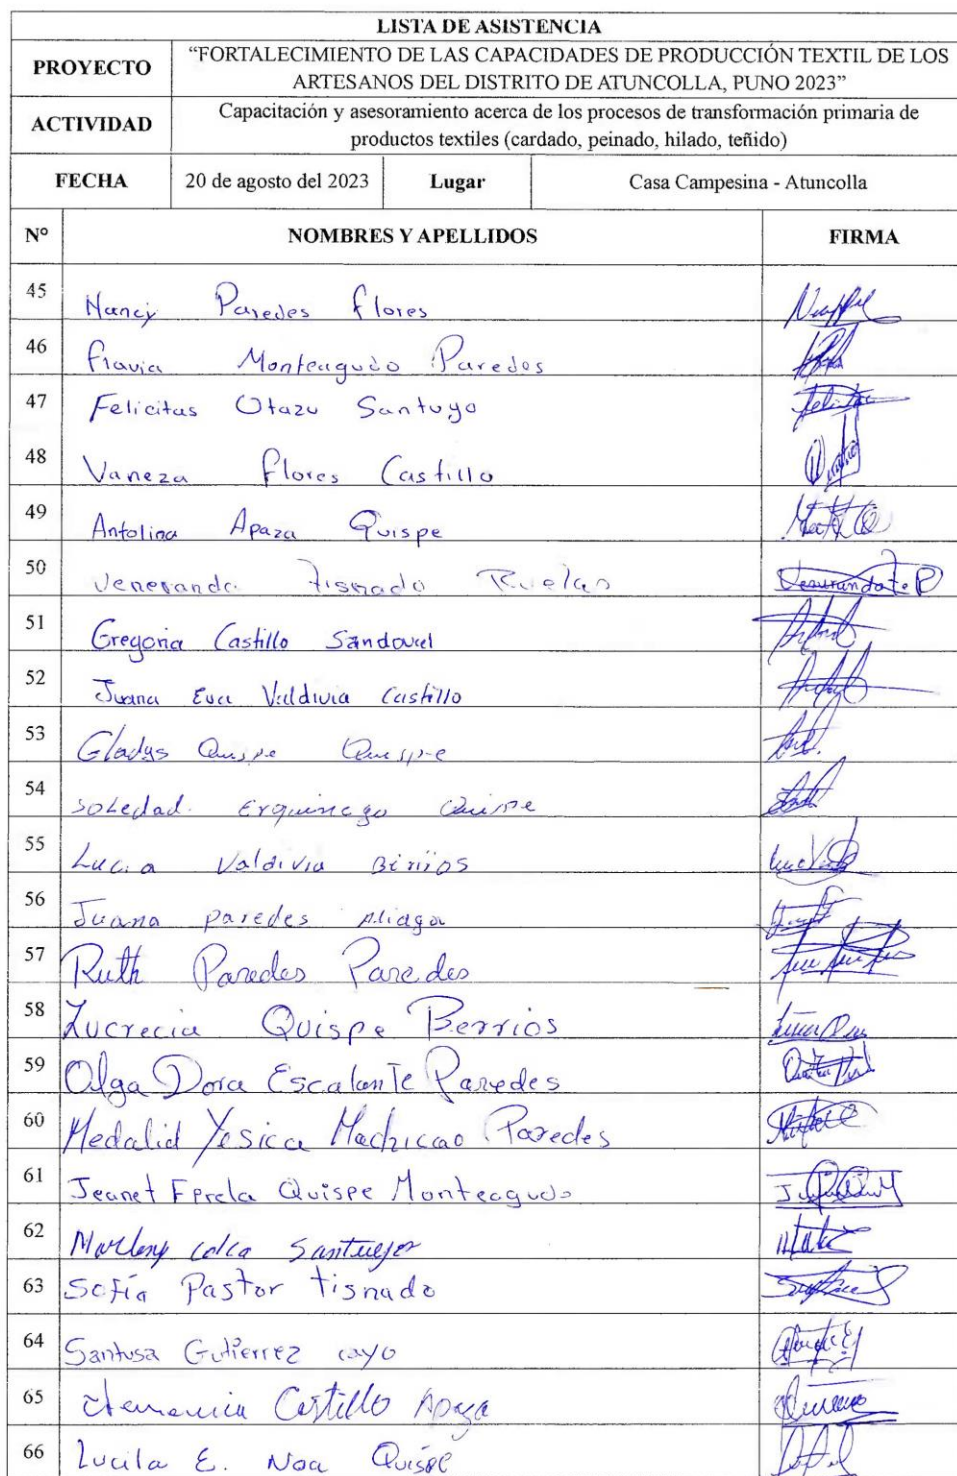 LISTA DE ASISTENCIA
PROYECTO
“FORTALECIMIENTO DE LAS CAPACIDADES DE PRODUCCIÓN TEXTIL DE LOS
ARTESANOS DEL DISTRITO DE ATUNCOLLA, PUNO 2023”
ACTIVIDAD
Capacitación y asesoramiento acerca de los procesos de transformación primaria de
productos textiles (cardado, peinado, hilado, teñido)
FECHA 20 de agosto del 2023 Lugar Casa Campesina - Atuncolla
N° NOMBRES Y APELLIDOS FIRMA
45 Nancy Paredes Flores
46 Flavia Monteagudo Paredes
47 Felicitas Otazu Santuyo
48 Vaneza Flores Castillo
49 Antolina Apaza Quispe
50 Veneranda Tisnado Ruelas
51 Gregoria Castillo Sandoval
52 Juana Eva Valdivia Castillo
53 Gladys Quispe Quispe
54 Soledad Quispe
55 Lucia Valdivia
56 Juana paredes Aliaga
57 Ruth Paredes Paredes
58 Lucrecia Quispe Berrios
59 Olga Dora Escalante Paredes
60 Medalid Yesica Machicao Paredes
61 Jeanet Quispe Monteagudo
62 Marleny
63 Sofía Pastor tisnado
64 Santusa Gutierrez cayo
65 Castillo Apaza
66 Lucila E. Noa Quispe